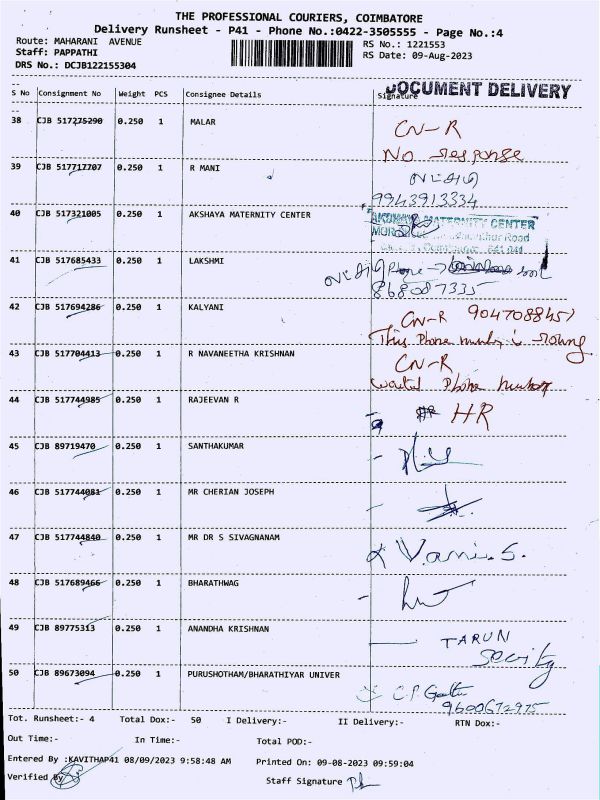 THE PROFESSIONAL COURIERS, COIMBATORE
Delivery Runsheet - P41 - Phone No.:0422-3505555 - Page No.:4
Route: MAHARANI AVENUE
Staff: PAPPATHI
DRS No.: DCJB122155304
RS No.: 1221553
RS Date: 09-Aug-2023
DOCUMENT DELIVERY
S No Consignment No Weight PCS Consignee Details Signature
38 CJB 517275290 0.250 1 MALAR CN-R
No response
39 CJB 517717707 0.250 1 R MANI
9943913334
40 CJB 517321005 0.250 1 AKSHAYA MATERNITY CENTER
MATERNITY CENTER
Road
41 CJB 517685433 0.250 1 LAKSHMI
Phone
8680087335
42 CJB 517694286 0.250 1 KALYANI CN-R 9047088451
This Phone
43 CJB 517704413 0.250 1 R NAVANEETHA KRISHNAN CN-R
Phone
44 CJB 517744985 0.250 1 RAJEEVAN R HR
45 CJB 89719470 0.250 1 SANTHAKUMAR
46 CJB 517744081 0.250 1 MR CHERIAN JOSEPH
47 CJB 517744840 0.250 1 MR DR S SIVAGNANAM
48 CJB 517689466 0.250 1 BHARATHWAG
49 CJB 89775313 0.250 1 ANANDHA KRISHNAN TARUN
50 CJB 89673094 0.250 1 PURUSHOTHAM/BHARATHIYAR UNIVER C.P.
9600672975
Tot. Runsheet:- 4 Total Dox:- 50 I Delivery:- II Delivery:- RTN Dox:-
Out Time:- In Time:- Total POD:-
Entered By :KAVITHAP41 08/09/2023 9:58:48 AM Printed On: 09-08-2023 09:59:04
Verified By Staff Signature